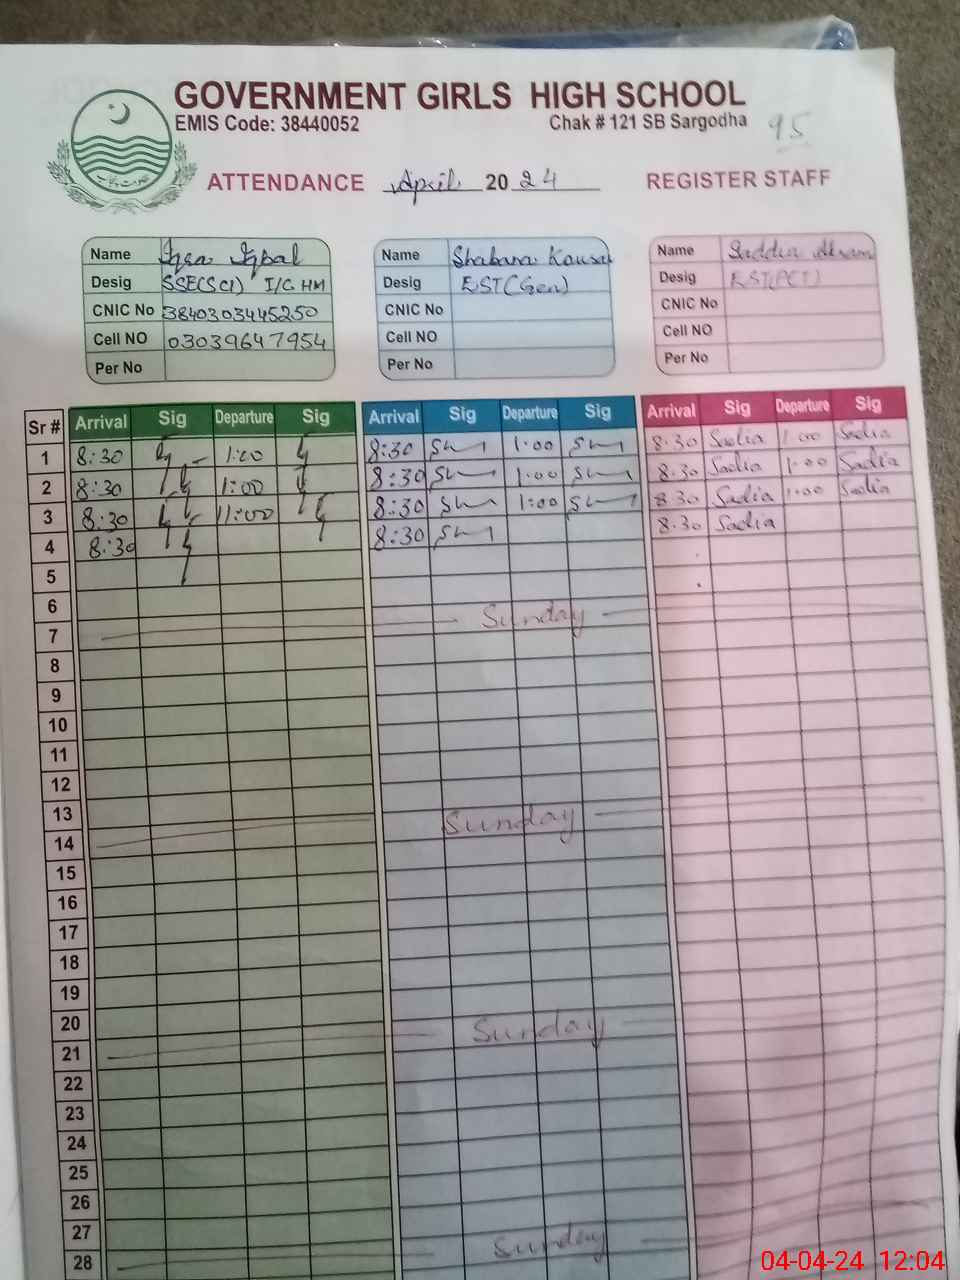 GOVERNMENT GIRLS HIGH SCHOOL
EMIS Code: 38440052 Chak # 121 SB Sargodha 95
ATTENDANCE April 2024 REGISTER STAFF
Name Iqra Iqbal Name Shabana Kousar Name Saddia Akram
Desig SSE(Sci) I/C HM Desig EST(Gen) Desig EST(PCT)
CNIC No 3840303445250 CNIC No CNIC No
Cell NO 03039647954 Cell NO Cell NO
Per No Per No Per No
Sr # Arrival Sig Departure Sig Arrival Sig Departure Sig Arrival Sig Departure Sig
1 8:30 1:00 8:30 1:00 8:30 Sadia 1:00 Sadia
2 8:30 1:00 8:30 1:00 8:30 Sadia 1:00 Sadia
3 8:30 11:00 8:30 1:00 8:30 Sadia 1:00 Sadia
4 8:30 8:30 8:30 Sadia
5
6
7 Sunday
8
9
10
11
12
13
14 Sunday
15
16
17
18
19
20
21 Sunday
22
23
24
25
26
27
28 Sunday
04-04-24 12:04